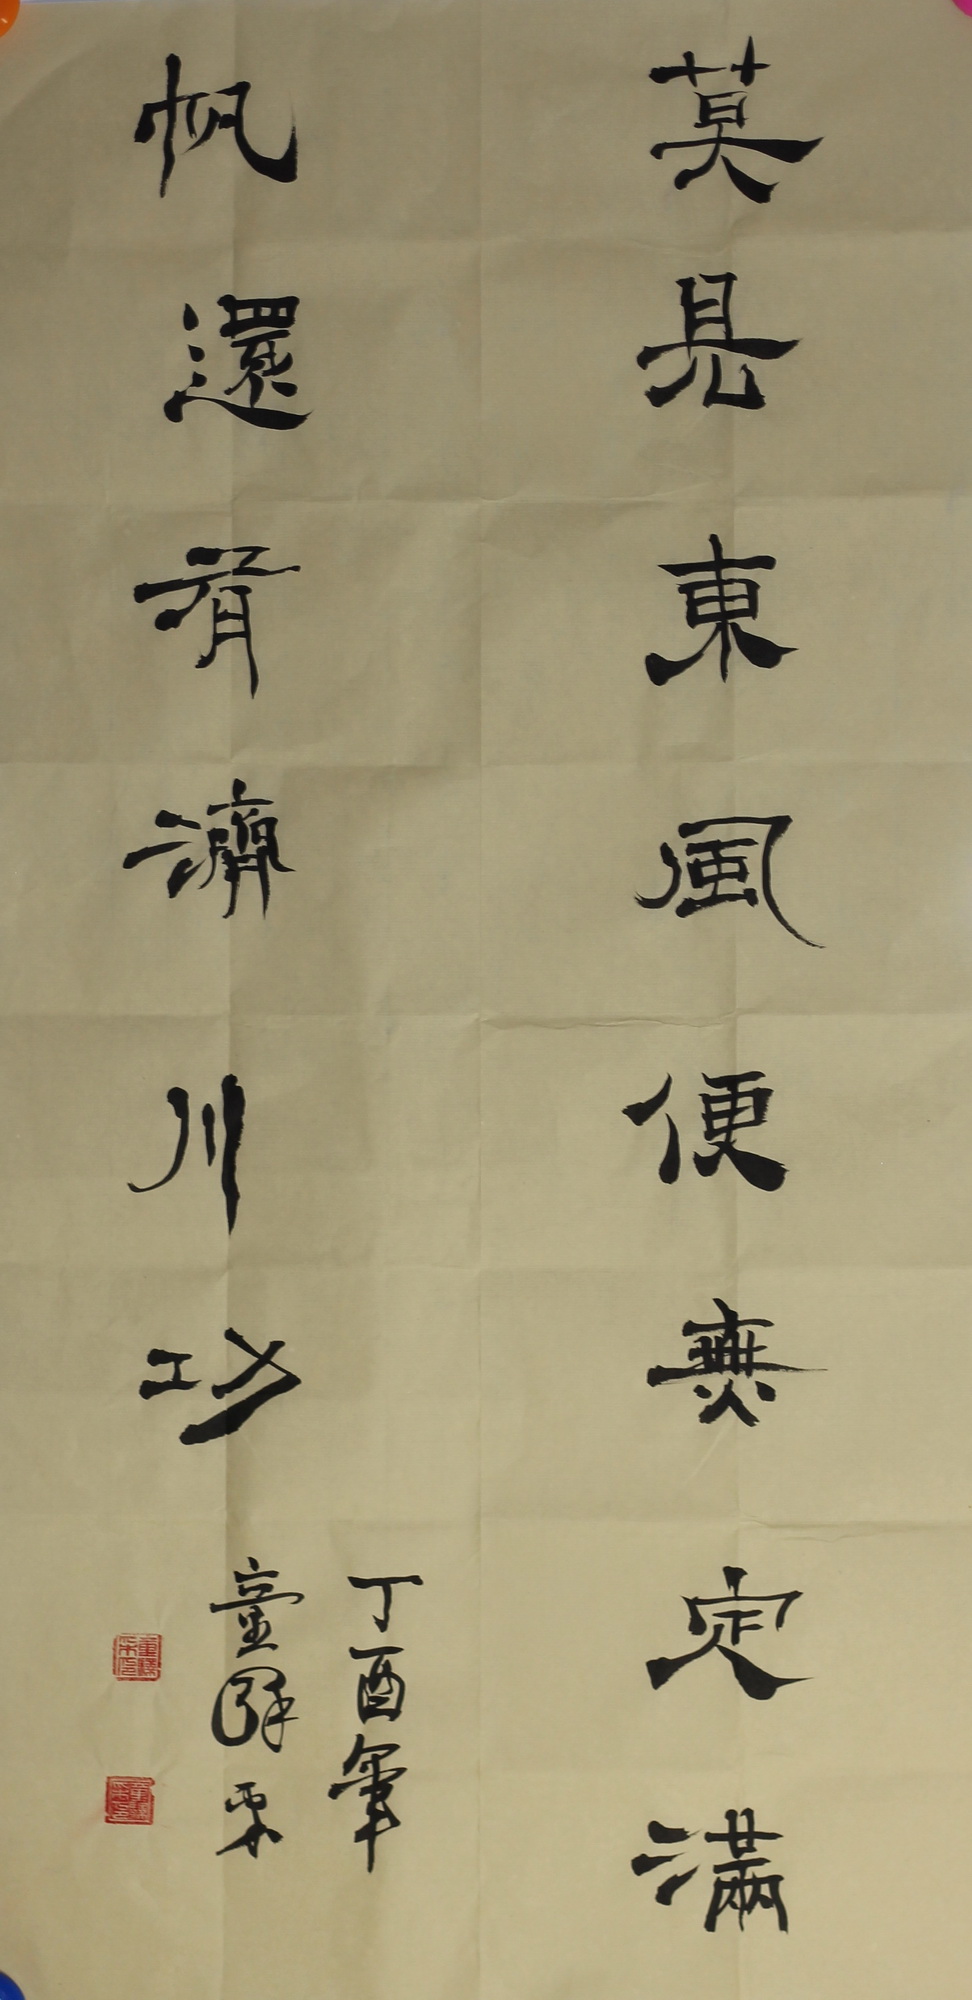 莫見東風便無定滿
帆還有濟川功
丁酉年